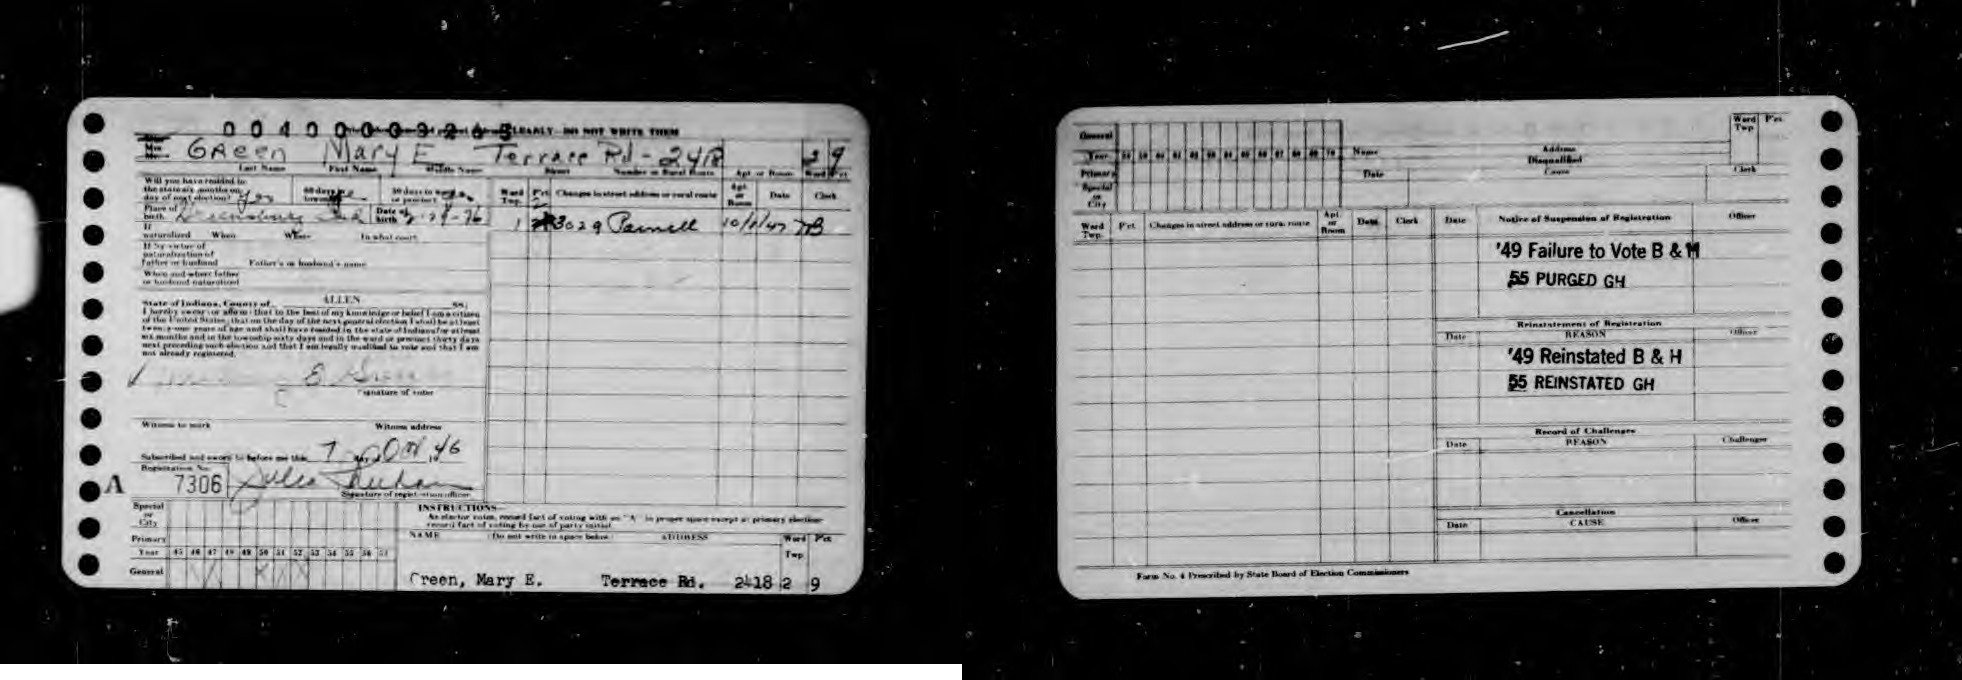 004000009265 CLEARLY—DO NOT WRITE THEM
Mrs.
GREEN Mary E Terrace Rd - 2418 2 9
Last Name First Name Middle Name Street Number or Rural Route Apt. or Room Ward Pct.
Will you have resided in
the state six months on
day of next election? yes 60 days in township 30 days in ward or precinct
Place of birth Greensburg Ind Date of birth
If naturalized When Where In what court
If by virtue of
naturalization of
father or husband Father's or husband's name
When and where father
or husband naturalized
Ward Twp. Pct. Changes in street address or rural route Apt. or Room Date Clerk
1 3029 Parnell 10/1/47
State of Indiana, County of ALLEN ss.:
I hereby swear (or affirm) that to the best of my knowledge or belief I am a citizen
of the United States; that on the day of the next general election I shall be at least
twenty-one years of age and shall have resided in the state of Indiana for at least
six months and in the township sixty days and in the ward or precinct thirty days
next preceding such election and that I am legally qualified to vote and that I am
not already registered.
E Green
Signature of voter
Witness to mark Witness address
Subscribed and sworn to before me this 7 day of Oct, 46
Registration No.
A 7306
Signature of registration officer
Special
or
City
Primary
Year 45 46 47 48 49 50 51 52 53 54 55 56 57
General
INSTRUCTIONS—
As elector votes, record fact of voting with an "A" in proper space except at primary election
record fact of voting by use of party initial.
NAME (Do not write in space below) ADDRESS Ward Pct.
Twp.
Green, Mary E. Terrace Rd. 2418 2 9
General
Year 58 59 60 61 62 63 64 65 66 67 68 69 70
Primary
Special
or
City
Name Address Ward Twp. Pct.
Disqualified
Date Cause Clerk
Ward Twp. Pct. Changes in street address or rural route Apt. or Room Date Clerk
Date Notice of Suspension of Registration Officer
'49 Failure to Vote B & H
55 PURGED GH
Reinstatement of Registration
Date REASON Officer
'49 Reinstated B & H
55 REINSTATED GH
Record of Challenges
Date REASON Challenger
Cancellation
Date CAUSE Officer
Form No. 4 Prescribed by State Board of Election Commissioners